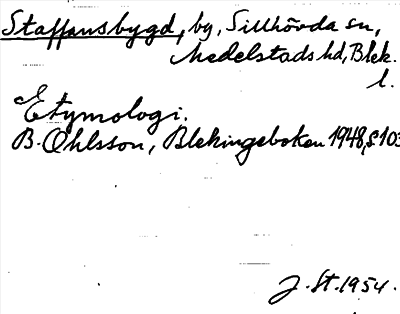 Staffansbygd, by, Sillhövda sn,
Medelstads hd, Blek.
l.
Etymologi.
B. Ohlsson, Blekingeboken 1948, s 103
J. St. 1954.